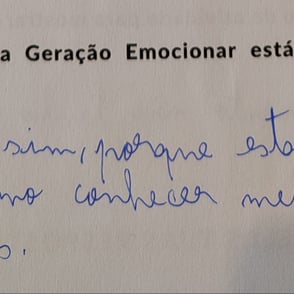 a Geração Emocionar está
sim, porque esta
mo conhecer me
o.